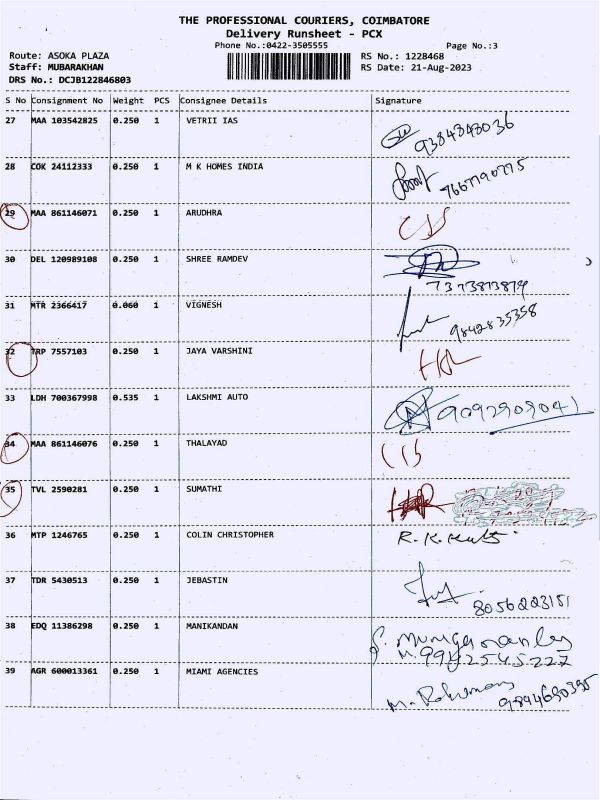 THE PROFESSIONAL COURIERS, COIMBATORE
Delivery Runsheet - PCX
Phone No.:0422-3505555 Page No.:3
Route: ASOKA PLAZA RS No.: 1228468
Staff: MUBARAKHAN RS Date: 21-Aug-2023
DRS No.: DCJB122846803
S No Consignment No Weight PCS Consignee Details Signature
27 MAA 103542825 0.250 1 VETRII IAS
9384343036
28 COK 24112333 0.250 1 M K HOMES INDIA
7667790775
29 MAA 861146071 0.250 1 ARUDHRA
30 DEL 120989108 0.250 1 SHREE RAMDEV
7373873879
31 MTR 2366417 0.060 1 VIGNESH
9842835358
32 TRP 7557103 0.250 1 JAYA VARSHINI
33 LDH 700367998 0.535 1 LAKSHMI AUTO
9092909041
34 MAA 861146076 0.250 1 THALAYAD
35 TVL 2590281 0.250 1 SUMATHI
36 MTP 1246765 0.250 1 COLIN CHRISTOPHER
37 TDR 5430513 0.250 1 JEBASTIN
8056223151
38 EDQ 11386298 0.250 1 MANIKANDAN
39 AGR 600013361 0.250 1 MIAMI AGENCIES